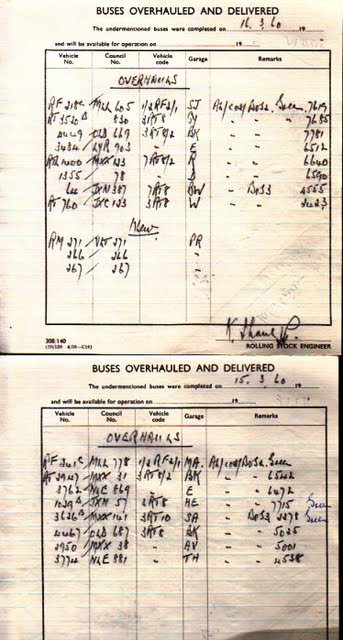 BUSES OVERHAULED AND DELIVERED
The undermentioned buses were completed on 16.3.60
and will be available for operation on 19
Vehicle No. Council No. Vehicle code Garage Remarks
OVERHAULS
MLL 605 1/2RF2/1 SJ 7619
RT 3520 B 830 3RT8 7685
4449 OLD 669 3RT8/2 BK 7781
3484 LYR 903 E 6512
MXX 123 7RT8/2 R 6640
1355 78 6590
JXN 387 7RT8 BW DOS3 4555
RT 760 JXC 123 3RT8 W 2423
New
RM 271 VLT 271 PR
266 266
267 267
ROLLING STOCK ENGINEER
308/140
BUSES OVERHAULED AND DELIVERED
The undermentioned buses were completed on 15.3.60 19
and will be available for operation on 19
Vehicle No. Council No. Vehicle code Garage Remarks
OVERHAULS
MLL 778 1/2RF2/1 MA
RT 2947 MXX 31 3RT8/2 BK 6542
3762 NLE 869 E 6472
JXN 57 2RT8 HE 7715 Green
3626 B MXX 141 3RT10 SA DOS3 2278 Green
4467 OLD 687 3RT8 BK 5025
2950 MXX 38 AV 5001
3774 NLE 881 TH 4538